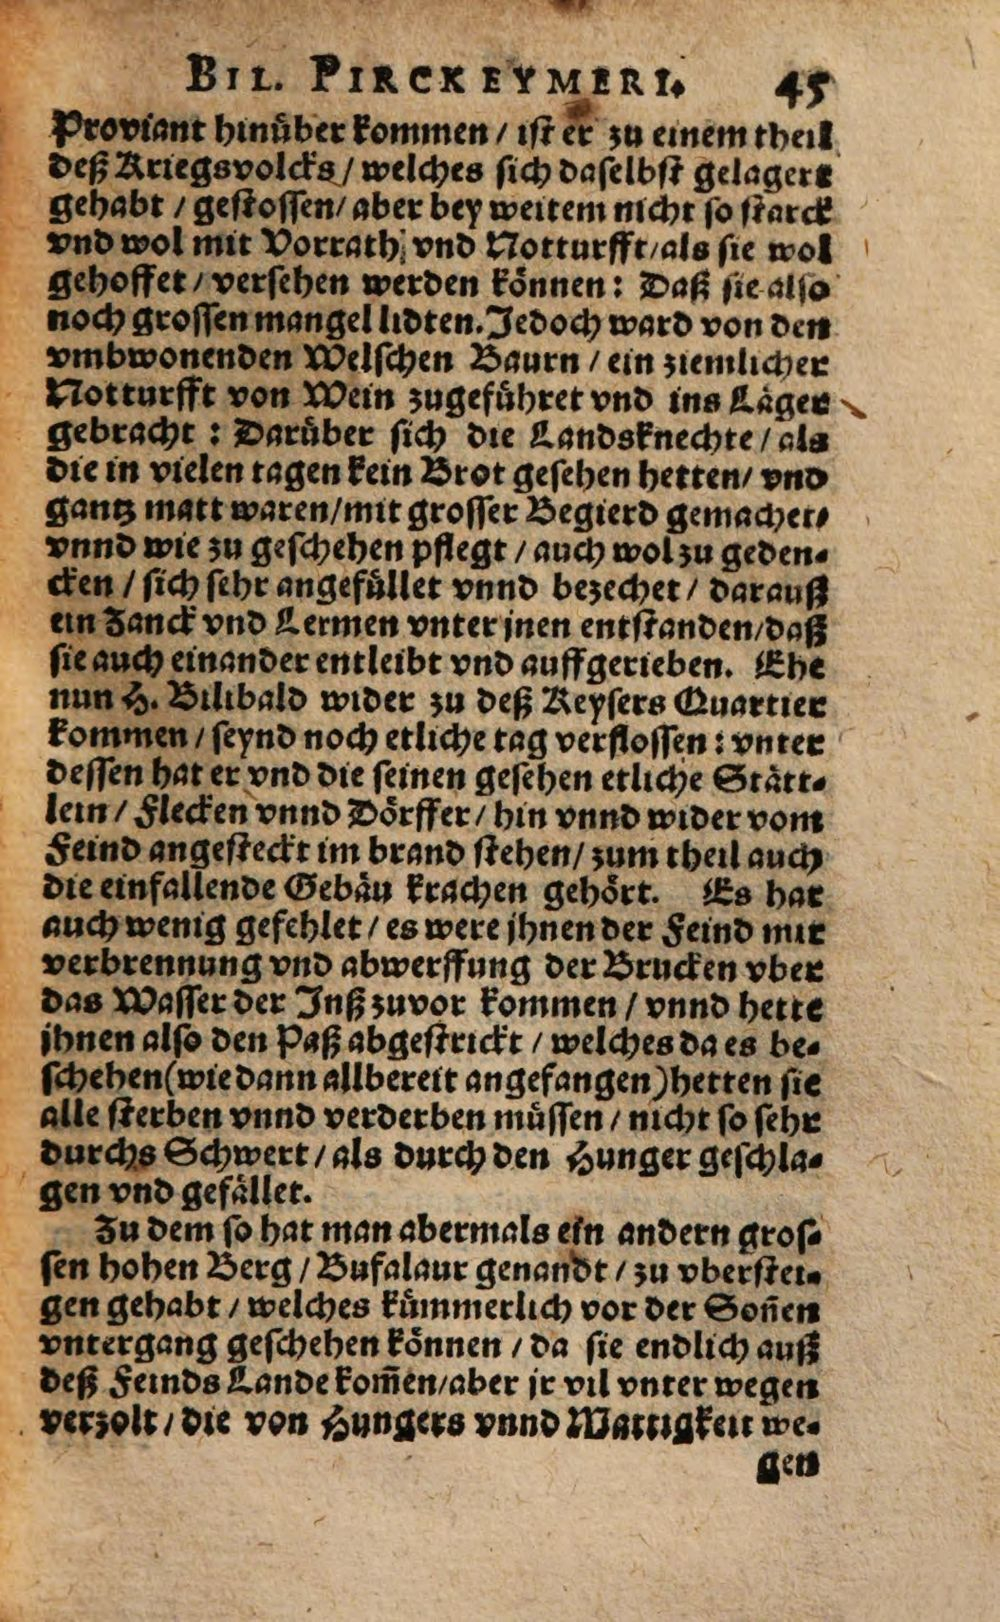 BIL. PIRCKEYMERI. 45
Proviant hinüber kommen / ist er zu einem theil
deß Kriegsvolcks / welches sich daselbst gelagert
gehabt / gestossen / aber bey weitem nicht so starck
vnd wol mit Vorrath vnd Notturfft / als sie wol
gehoffet / versehen werden können: Daß sie also
noch grossen mangel lidten. Jedoch ward von den
vmbwonenden Welschen Baurn / ein ziemlicher
Notturfft von Wein zugeführet vnd ins Läger
gebracht: Darüber sich die Landsknechte / als
die in vielen tagen kein Brot gesehen hetten / vnd
gantz matt waren / mit grosser Begierd gemachet /
vnnd wie zu geschehen pflegt / auch wol zu geden-
cken / sich sehr angefüllet vnnd bezechet / darauß
ein Zanck vnd Lermen vnter jnen entstanden / daß
sie auch einander entleibt vnd auffgerieben. Ehe
nun H. Bilibald wider zu deß Keysers Quartier
kommen / seynd noch etliche tag verflossen: vnter
dessen hat er vnd die seinen gesehen etliche Stätt-
lein / Flecken vnnd Dörffer / hin vnnd wider vom
Feind angesteckt im brand stehen / zum theil auch
die einfallende Gebäu krachen gehört. Es hat
auch wenig gefehlet / es were jhnen der Feind mit
verbrennung vnd abwerffung der Brucken vber
das Wasser der Jnß zuvor kommen / vnnd hette
jhnen also den Paß abgestrickt / welches da es be-
schehen (wie dann allbereit angefangen) hetten sie
alle sterben vnnd verderben müssen / nicht so sehr
durchs Schwert / als durch den Hunger geschla-
gen vnd gefället.
Zu dem so hat man abermals ein andern gros-
sen hohen Berg / Bufalaur genandt / zu vberstei-
gen gehabt / welches kümmerlich vor der Soñen
vntergang geschehen können / da sie endlich auß
deß Feinds Lande kom̃en / aber jr vil vnter wegen
verzolt / die von Hungers vnnd Mattigkeit we-
gen